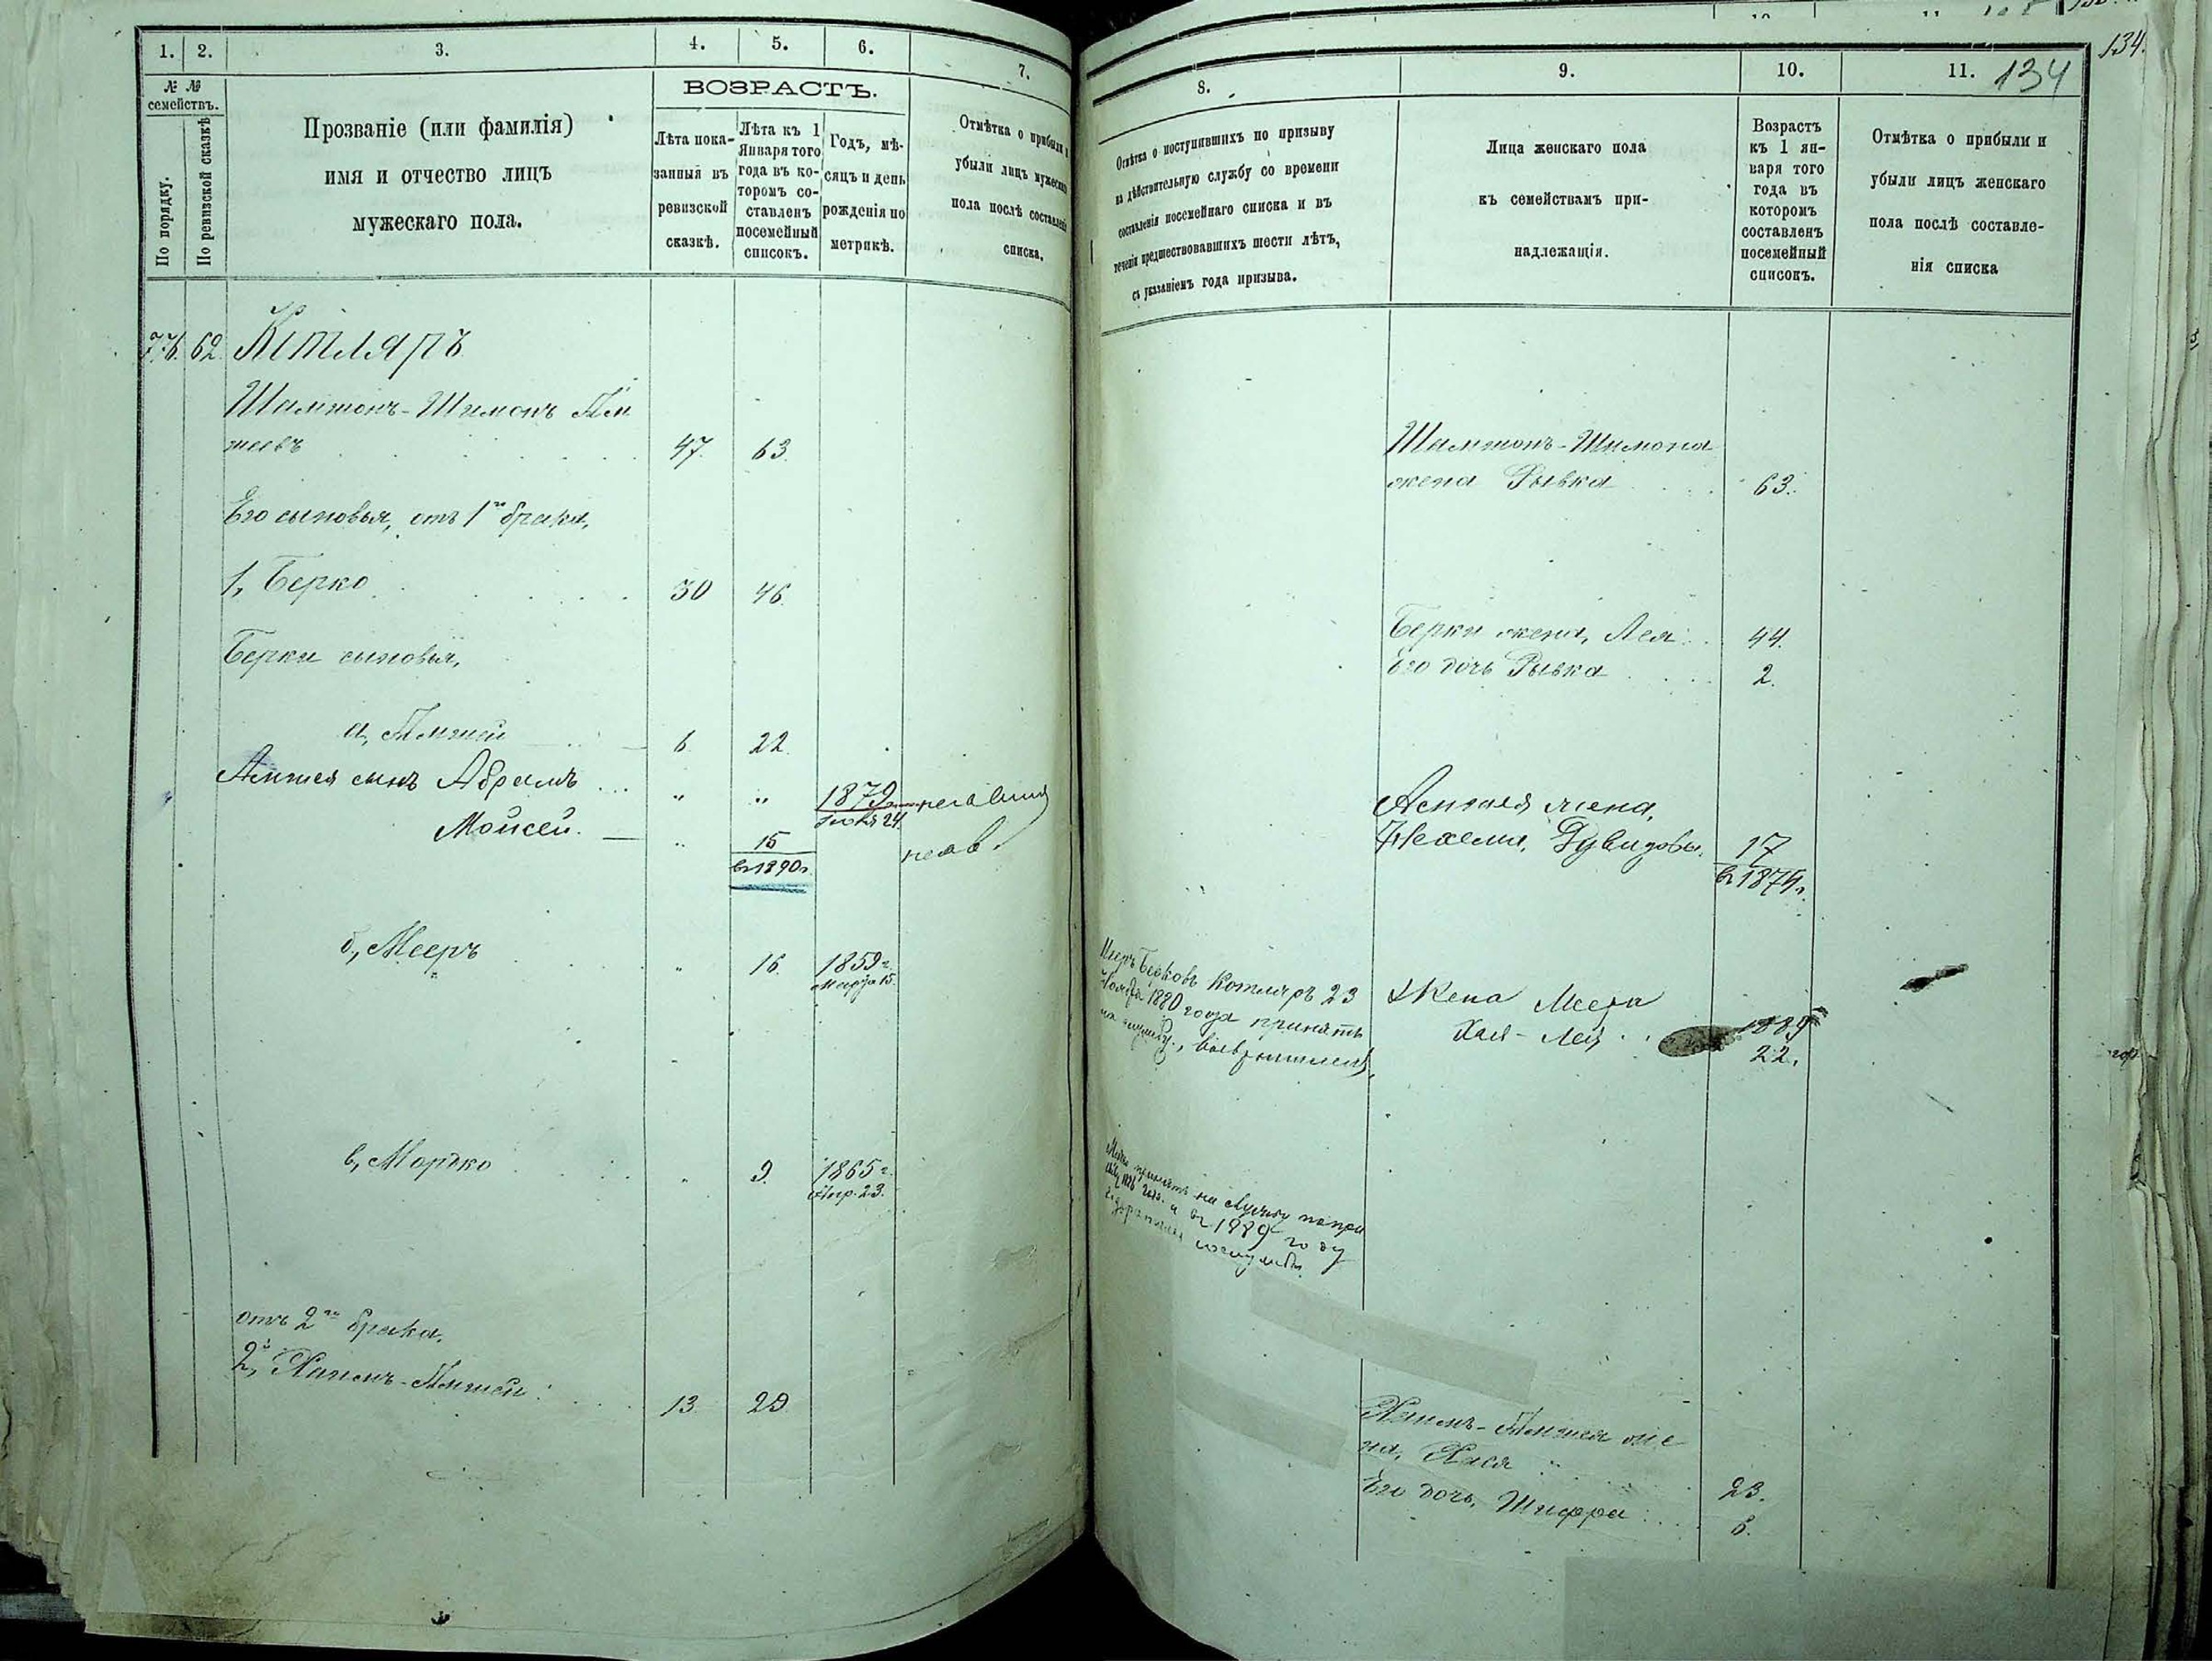 134.
134
1. 2. 3. 4. 5. 6. 7.
№ №
семействъ.
По порядку.
По ревизской сказкѣ
Прозваніе (или фамилія)
имя и отчество лицъ
мужескаго пола.
ВОЗРАСТЪ.
Лѣта пока-
занныя въ
ревизской
сказкѣ.
Лѣта къ 1
Января того
года въ ко-
торомъ со-
ставленъ
посемейный
списокъ.
Годъ, мѣ-
сяцъ и день
рожденія по
метрикѣ.
Отмѣтка о прибыли
убыли лицъ мужескаго
пола послѣ составленія
списка.
76. 62. Котляръ
Шамшонъ-Шимонъ Ам
шеевъ 47. 63.
Его сыновья, отъ 1го брака,
1, Берко 30 46.
Берки сыновья,
а, Амшей 6 22.
Амшея сынъ Абрамъ ... " " 1879 неявился
Іюня 24.
Мойсей. " 15 неяв.
въ 1890г.
б, Мееръ " 16. 1859 г.
Марта 15.
в, Мордко " 9. 1865 г.
Апр. 23.
отъ 2го брака.
2, Хаимъ-Амшей 13. 29
8. 9. 10. 11.
Отмѣтка о поступившихъ по призыву
на дѣйствительную службу со времени
составленія посемейнаго списка и въ
теченіи предшествовавшихъ шести лѣтъ,
съ указаніемъ года призыва.
Лица женскаго пола
къ семействамъ при-
надлежащія.
Возрастъ
къ 1 ян-
варя того
года въ
которомъ
составленъ
посемейный
списокъ.
Отмѣтка о прибыли и
убыли лицъ женскаго
пола послѣ составле-
нія списка
Шамшонъ-Шимона
жена Рывка 63.
Берки жена, Лея 44.
Его дочь Рывка 2.
Амшея жена,
Нехема, Дувидовы. 17
въ 1875г.
Мееръ Берковъ Котляръ 23
Ноября 1880 года принятъ
на службу,
Жена Меера
Хая-Лея 1889
22.
принятъ на службу
1886 и въ 1889 году
Хаимъ-Амшея же
на, Хася 23.
Его дочь, Шифра 6.